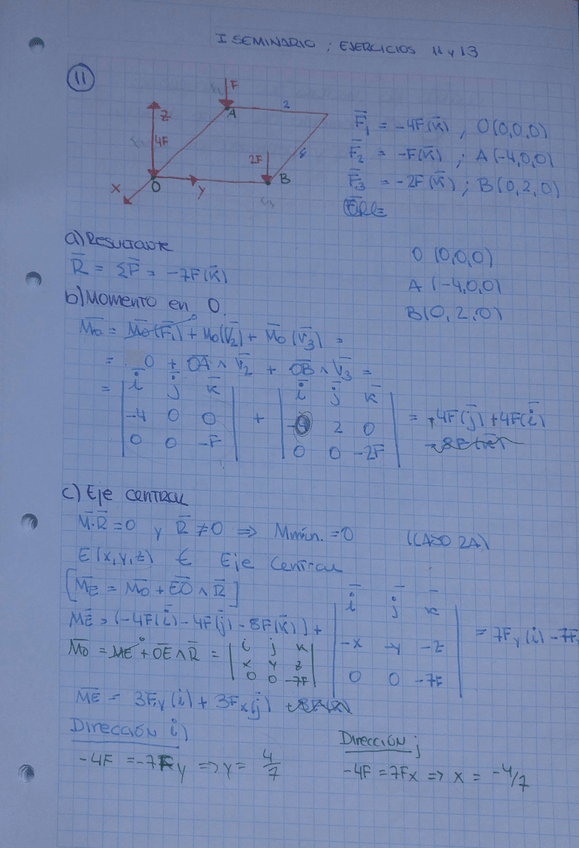 I SEMINARIO ; EJERCICIOS 11 y 13
11
F
A
2
Z
4F
2F
B
X
O
Y
F̄₁ = -4F(k̄) , O(0,0,0)
F̄₂ = -F(k̄) ; A(-4,0,0)
F̄₃ = -2F(k̄) ; B(0,2,0)
a) Resultante
R̄ = ΣF̄ = -7F(k̄)
O (0,0,0)
A (-4,0,0)
B(0,2,0)
b) Momento en O.
M̄o = M̄o(F̄₁) + M̄o(V̄₂) + M̄o(V̄₃) =
= 0 + ŌĀ ∧ V̄₂ + ŌB̄ ∧ V̄₃ =
= | ī j̄ k̄ | + | ī j̄ k̄ |
| -4 0 0 | + | 0 2 0 | = -4F(j̄) + 4F(ī)
| 0 0 -F | | 0 0 -2F |
c) Eje central
M̄·R̄ = 0 y R̄ ≠ 0 ⇒ Mmín. = 0 (CASO 2A)
E(x,y,z) ∈ Eje central
[M̄E = M̄o + ĒŌ ∧ R̄]
M̄E = (-4F(ī) - 4F(j̄) - 8F(k̄)) + | ī j̄ k̄ |
| -x -y -z | = 7Fy(ī) - 7F
| 0 0 -7F |
M̄o = M̄E + ŌĒ ∧ R̄ = | i j k |
| x y z |
| 0 0 -7F |
M̄E = 3Fy(ī) + 3Fx(j̄)
Dirección i)
-4F = -7Fy ⇒ y = 4/7
Dirección j
-4F = 7Fx ⇒ x = -4/7